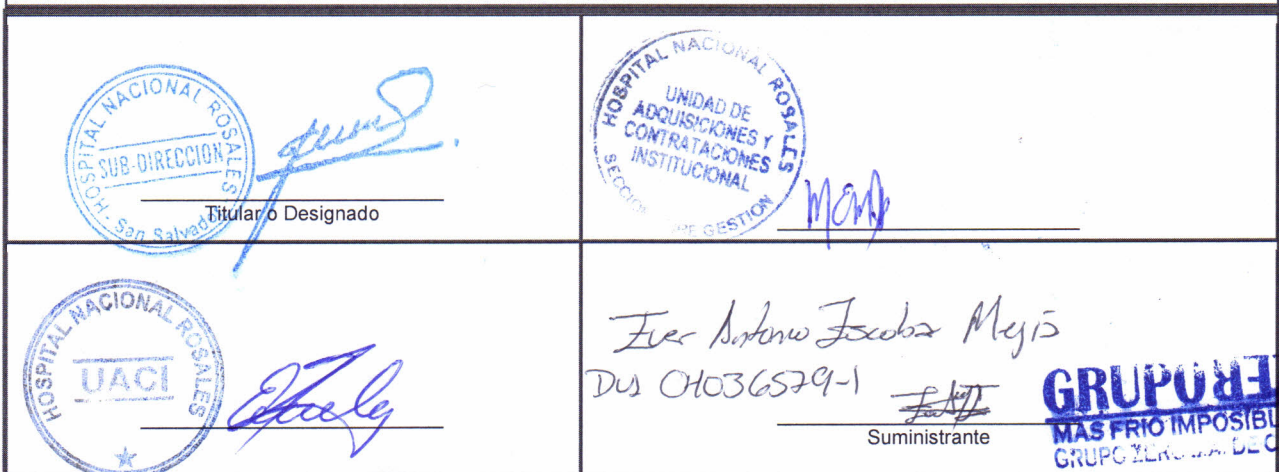 HOSPITAL NACIONAL ROSALES
SUB-DIRECCION
San Salvador
Titular o Designado
HOSPITAL NACIONAL ROSALES
UNIDAD DE
ADQUISICIONES Y
CONTRATACIONES
INSTITUCIONAL
GESTION
HOSPITAL NACIONAL ROSALES
UACI
Antonio Escobar
Suministrante
GRUPO
MAS FRIO IMPOSIBL
GRUPO DE C